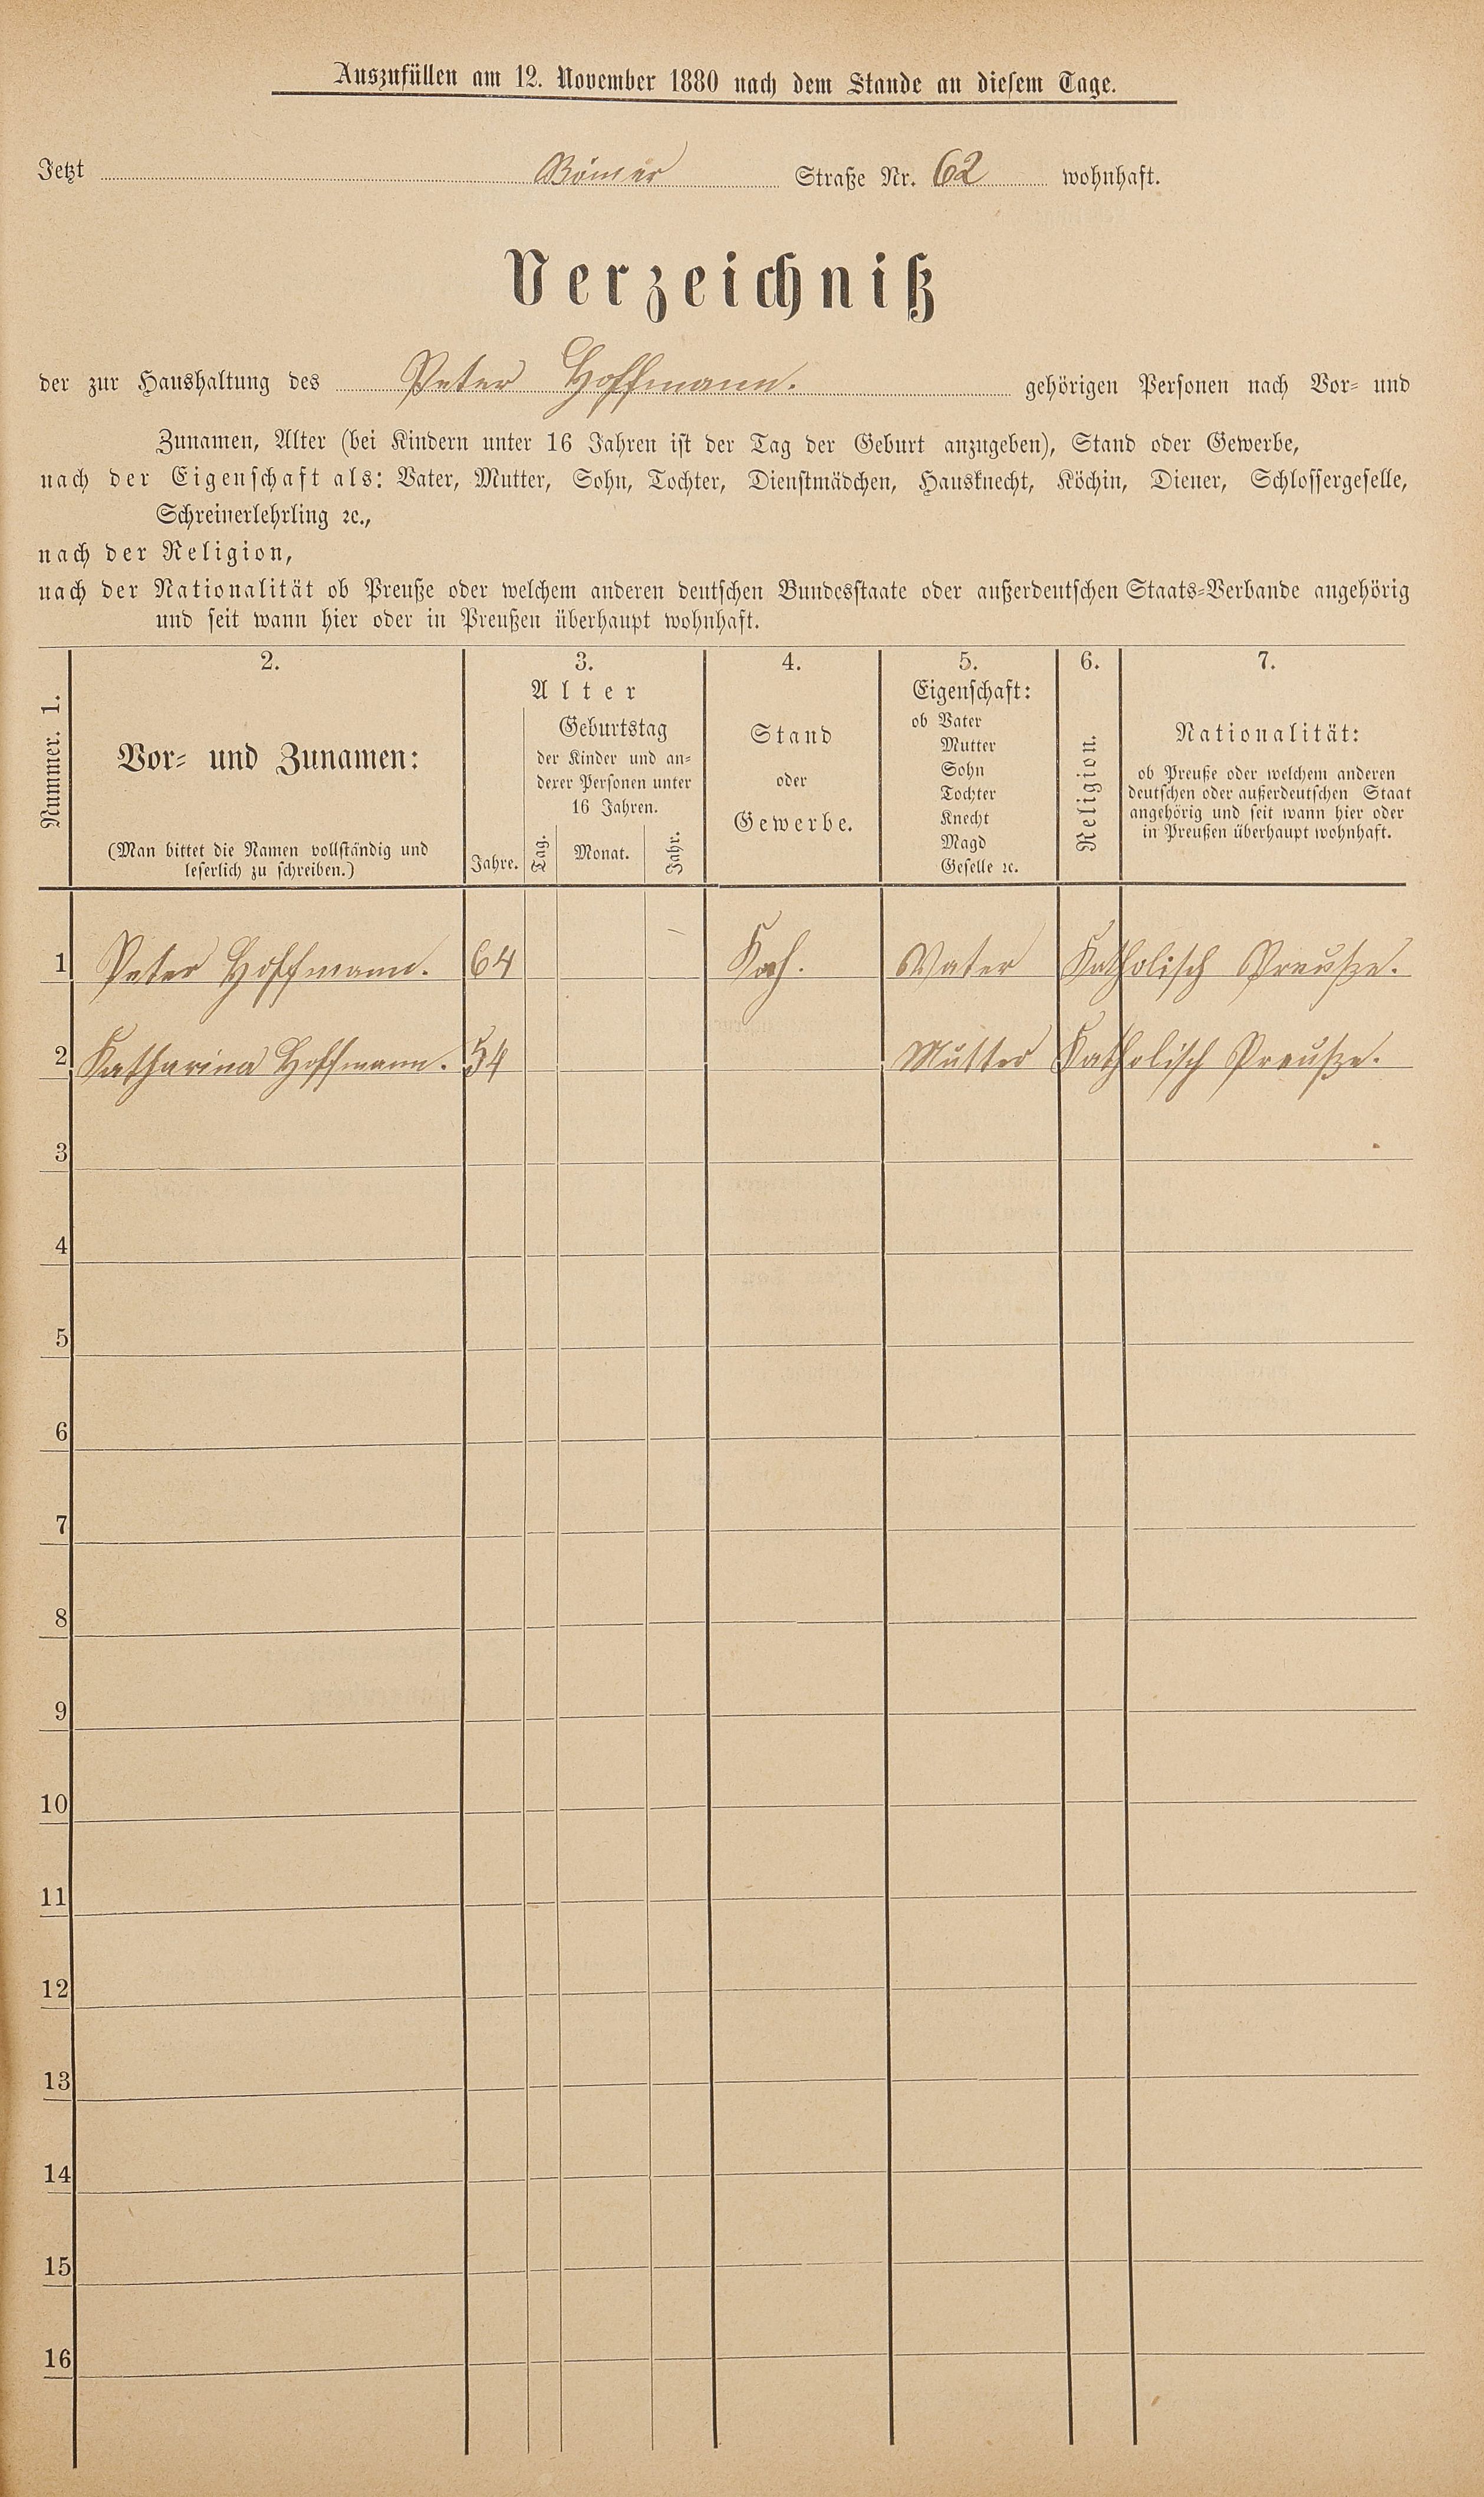 Auszufüllen am 12. November 1880 nach dem Stande an diesem Tage.
Jetzt Römer Straße Nr. 62 wohnhaft.
Verzeichniß
der zur Haushaltung des Peter Hoffmann. gehörigen Personen nach Vor- und
Zunamen, Alter (bei Kindern unter 16 Jahren ist der Tag der Geburt anzugeben), Stand oder Gewerbe,
nach der Eigenschaft als: Vater, Mutter, Sohn, Tochter, Dienstmädchen, Hausknecht, Köchin, Diener, Schlossergeselle,
Schreinerlehrling ꝛc.,
nach der Religion,
nach der Nationalität ob Preuße oder welchem anderen deutschen Bundesstaate oder außerdeutschen Staats-Verbande angehörig
und seit wann hier oder in Preußen überhaupt wohnhaft.
Nummer. 1.
2.
Vor- und Zunamen:
(Man bittet die Namen vollständig und
leserlich zu schreiben.)
3.
Alter
Jahre.
Geburtstag
der Kinder und an-
derer Personen unter
16 Jahren.
Tag. Monat. Jahr.
4.
Stand
oder
Gewerbe.
5.
Eigenschaft:
ob Vater
Mutter
Sohn
Tochter
Knecht
Magd
Geselle ꝛc.
6.
Religion.
7.
Nationalität:
ob Preuße oder welchem anderen
deutschen oder außerdeutschen Staat
angehörig und seit wann hier oder
in Preußen überhaupt wohnhaft.
1 Peter Hoffmann. 64 Koch. Vater Katholisch Preusze.
2 Katharina Hoffmann. 54 Mutter Katholisch Preusze.
3
4
5
6
7
8
9
10
11
12
13
14
15
16